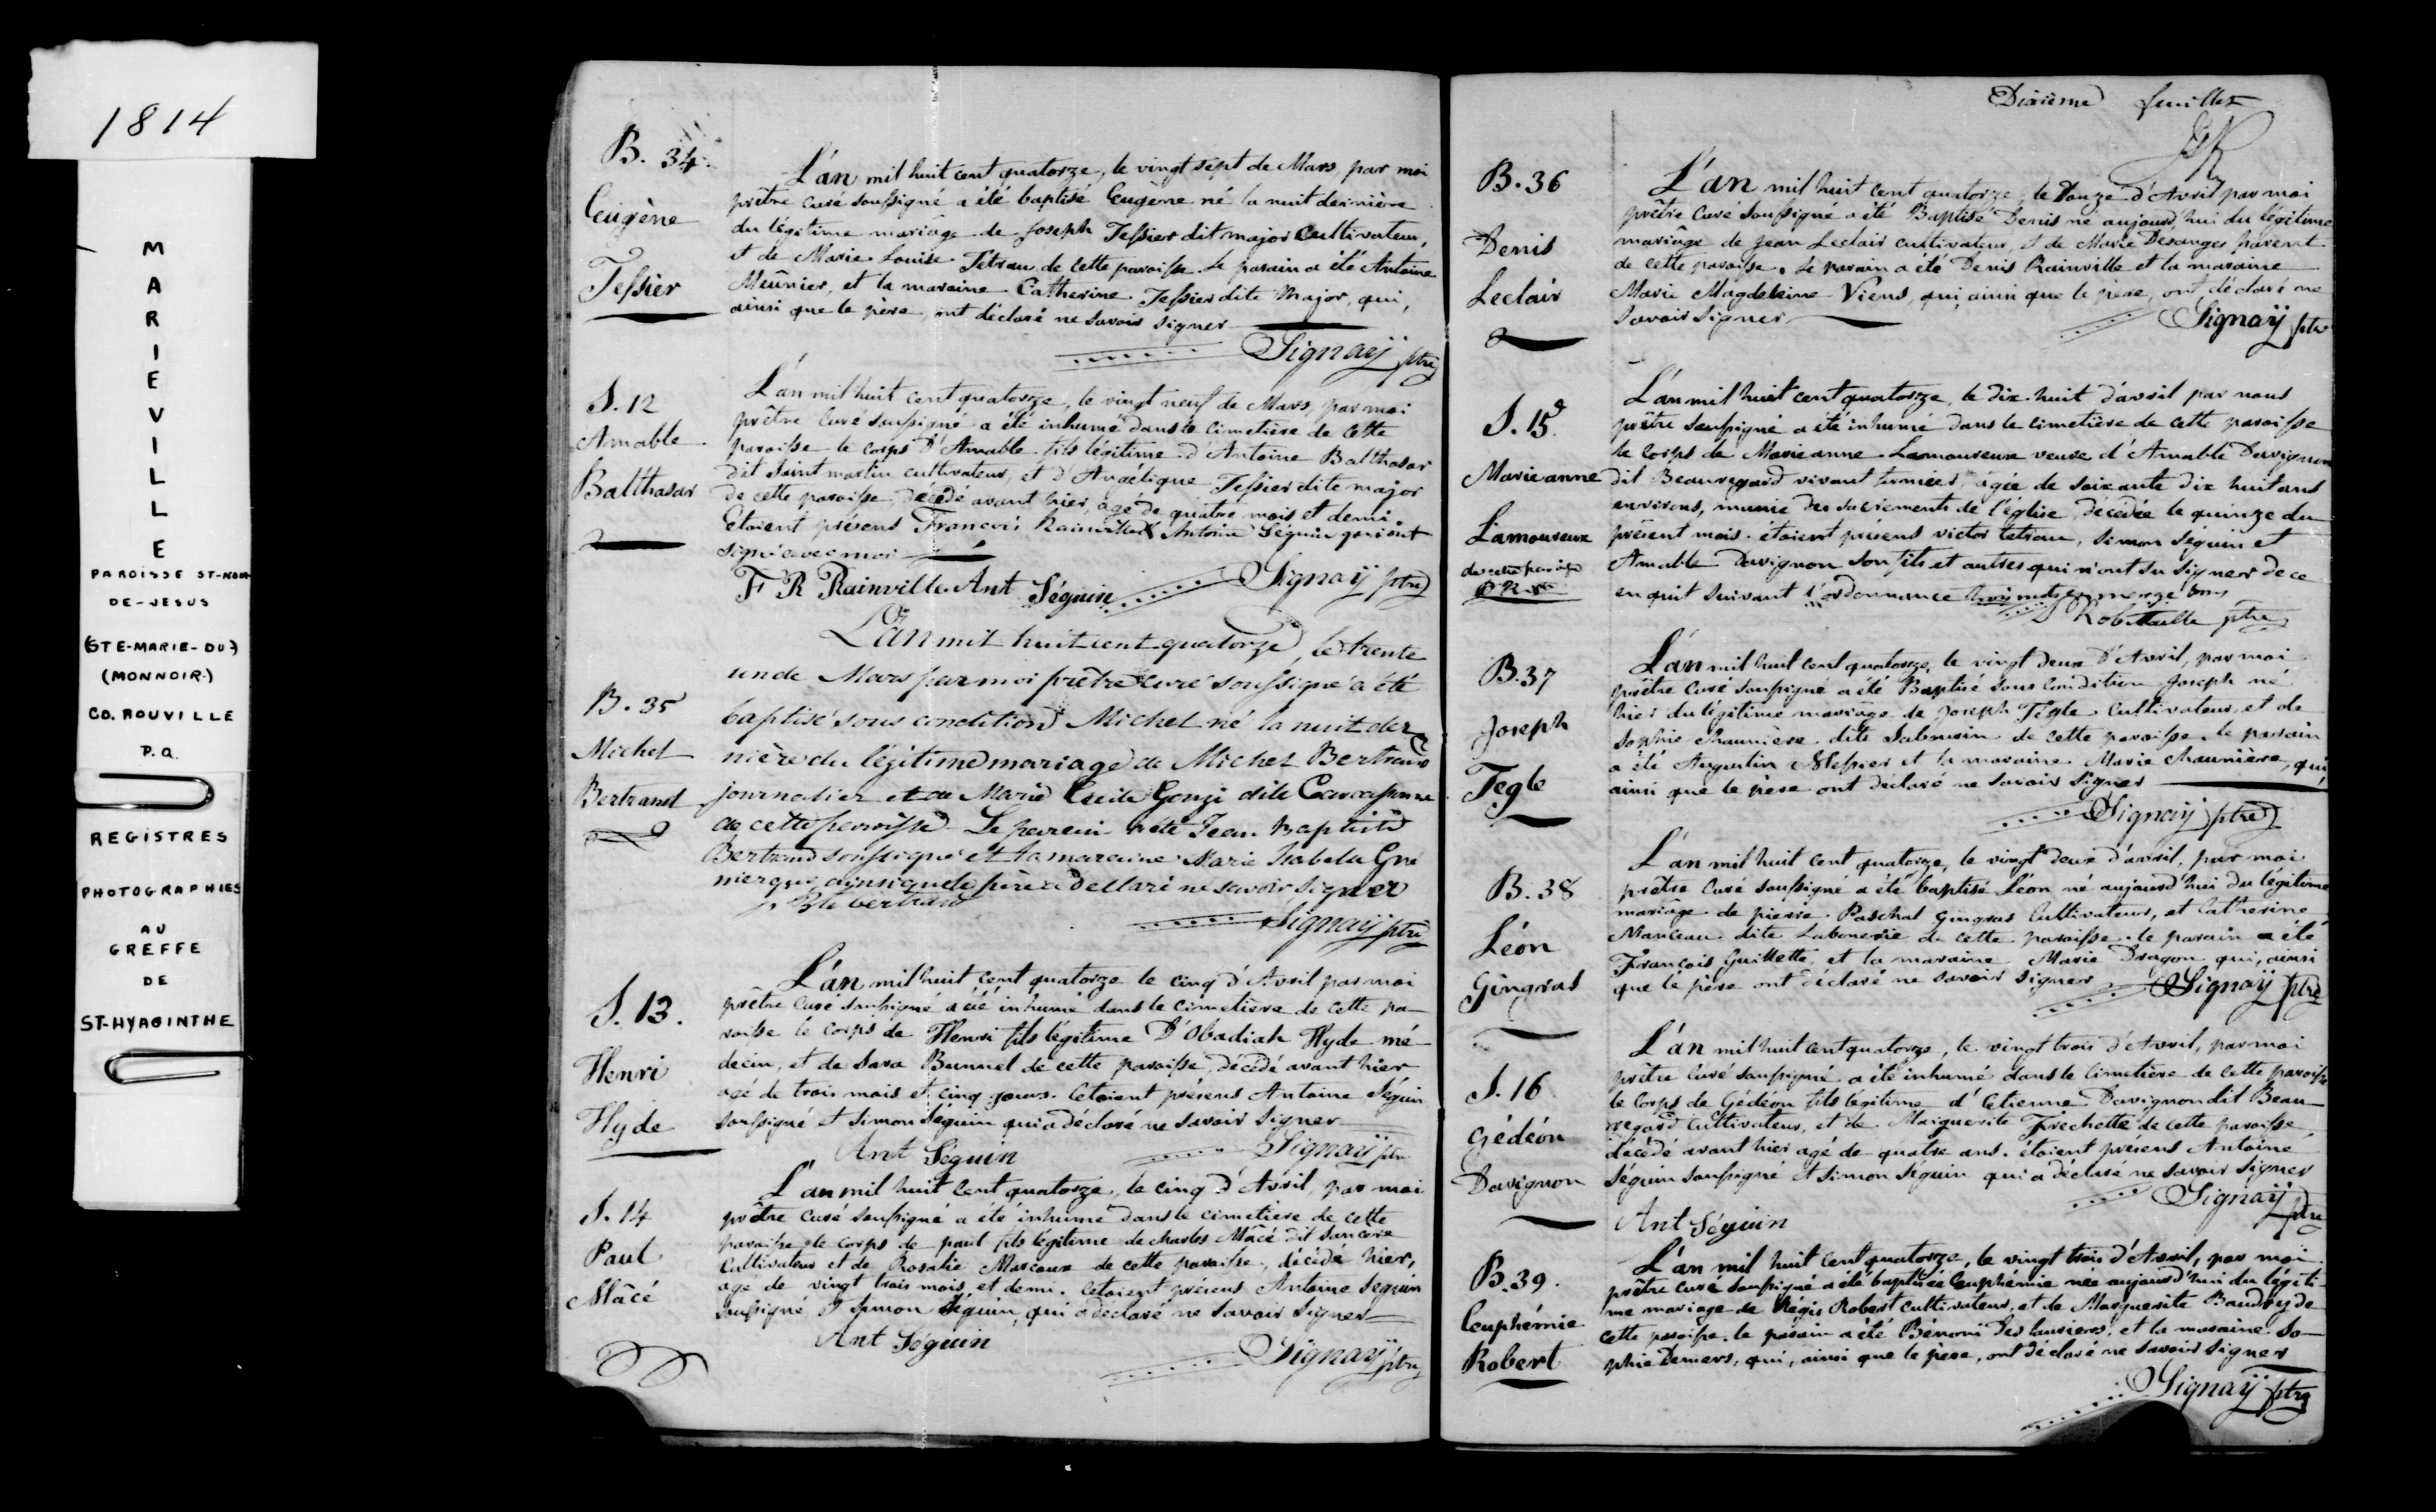 1814
MARIEVILLE
PAROISSE ST-NOM-
DE-JESUS
(STE-MARIE-DU-)
(MONNOIR)
CO. ROUVILLE
P.Q.
REGISTRES
PHOTOGRAPHIES
AU
GREFFE
DE
ST-HYACINTHE
B. 34.
Eugène
Tessier
L'an mil huit cent quatorze, le vingt sept de Mars, par moi
prêtre curé soussigné a été baptisé Eugène né la nuit dernière
du légitime mariage de Joseph Tessier dit major Cultivateur,
et de Marie Louise Tétrau de cette paroisse. Le parain a été Antoine
Meûnier, et la maraine Catherine Tessier dite Major, qui,
ainsi que le père, ont déclaré ne savoir signer
Signaÿ ptre
S. 12
Amable
Balthasar
L'an mil huit cent quatorze, le vingt neuf de Mars, par moi
prêtre Curé soussigné a été inhumé dans le cimetière de cette
paroisse le corps d'Amable fils légitime d'Antoine Balthasar
dit Saint martin cultivateur, et d'Angélique Tessier dite major
de cette paroisse, décédé avant hier, agé de quatre mois et demi.
Etoient présens François Rainville & Antoine Séguin qui ont
signé avec moi
F R Rainville Ant Séguin Signaÿ ptre
B. 35
Michel
Bertrand
L'an mil huit cent quatorze, le trente
un de Mars par moi prêtre curé soussigné a été
baptisé sous condition Michel né la nuit der
nière du légitime mariage de Michel Bertrand
journalier et de Marie Cecile Gonzi dite Carcassonne
de cette paroisse Le parein a été Jean Baptiste
Bertrand soussigné et la maraine Marie Isabelle Gre
nier qui ainsi que le père a déclaré ne savoir signer
J Bte bertrand
Signaÿ ptre
S. 13.
Henri
Hyde
L'an mil huit cent quatorze le cinq d'Avril par moi
prêtre Curé soussigné a été inhumé dans le cimetière de cette pa-
roisse le corps de Henri fils légitime d'Obadiah Hyde mé-
decin, et de Sara Bunnel de cette paroisse, décédé avant hier
agé de trois mois et cinq jours. Etoient présens Antoine Séguin
soussigné et Simon Séguin qui a déclaré ne savoir signer
Ant Séguin Signaÿ ptre
S. 14
Paul
Mâcé
L'an mil huit cent quatorze, le cinq d'Avril, par moi
prêtre Curé soussigné a été inhumé dans le cimetiere de cette
paroisse le corps de paul fils légitime de charles Mâcé dit Sancere
Cultivateur et de Rosalie Marcoux de cette paroisse, décédé hier,
agé de vingt trois mois et demi. Etoient présens Antoine Seguin
soussigné et Simon Séguin, qui a déclaré ne savoir signer
Ant Séguin
Signaÿ ptre
Dixième feuillet
B. 36
Denis
Leclair
L'an mil huit cent quatorze, le Douze d'Avril par moi
prêtre Curé soussigné a été Baptisé Denis né aujourd'hui du légitime
mariage de Jean Leclair cultivateur, et de Marie Desanges parent
de cette paroisse. Le parain a été Denis Rainville et la maraine
Marie Magdeleine Viens, qui, ainsi que le père, ont déclaré ne
savoir signer
Signaÿ ptre
S. 15
Marieanne
Lamoureux
de cette paroisse
L'an mil huit cent quatorze, le dix-huit d'avril par nous
prêtre soussigné a été inhumé dans le cimetière de cette paroisse
le corps de Marieanne Lamoureux veuve d'Amable Davignon
dit Beauregard vivant fermier, agée de soixante dix huit ans
environs, munie des sacrements de l'église, décédée le quinze du
présent mois. étoient présens victor tetrau, simon séguin et
Amable Davignon son fils et autres qui n'ont su signer de ce
enquit suivant l'ordonnance en marge
Robitaille ptre
B. 37
Joseph
Tegle
L'an mil huit cent quatorze, le vingt deux d'Avril, par moi
prêtre Curé soussigné a été Baptisé sous condition Joseph né
hier du légitime mariage de Joseph Tégle Cultivateur, et de
Sophie Chaunière dite Sabourin de cette paroisse. le parain
a été Augustin Messier et la maraine Marie Chaunière, qui,
ainsi que le père ont déclaré ne savoir signer
Signaÿ ptre
B. 38
Léon
Gingras
L'an mil huit cent quatorze, le vingt deux d'avril, par moi
prêtre Curé soussigné a été baptisé Léon né aujourd'hui du légitime
mariage de pierre Paschal Gingras Cultivateur, et Catherine
Manceau dite Labonerie de cette paroisse. le parain a été
François Guillette, et la maraine Marie Dragon qui, ainsi
que le père ont déclaré ne savoir signer Signaÿ ptre
S. 16
Gédéon
Davignon
L'an mil huit cent quatorze, le vingt trois d'Avril, par moi
prêtre Curé soussigné a été inhumé dans le Cimetière de cette paroisse
le corps de Gédéon fils légitime d'Etienne Davignon dit Beau-
regard Cultivateur, et de Marguerite Frechette de cette paroisse
décédé avant hier agé de quatre ans. étoient présens Antoine
Séguin soussigné et Simon Séguin qui a déclaré ne savoir signer
Signaÿ ptre
Ant Séguin
B. 39.
Euphémie
Robert
L'an mil huit cent quatorze, le vingt trois d'Avril, par moi
prêtre curé soussigné a été baptisée Euphémie née aujourd'hui du légiti-
me mariage de Régis Robert cultivateur, et de Marguerite Baudry de
cette paroisse. le parain a été Bénoni Des lauriers, et la maraine So-
phie Demers, qui, ainsi que le père, ont déclaré ne savoir signer
Signaÿ ptre